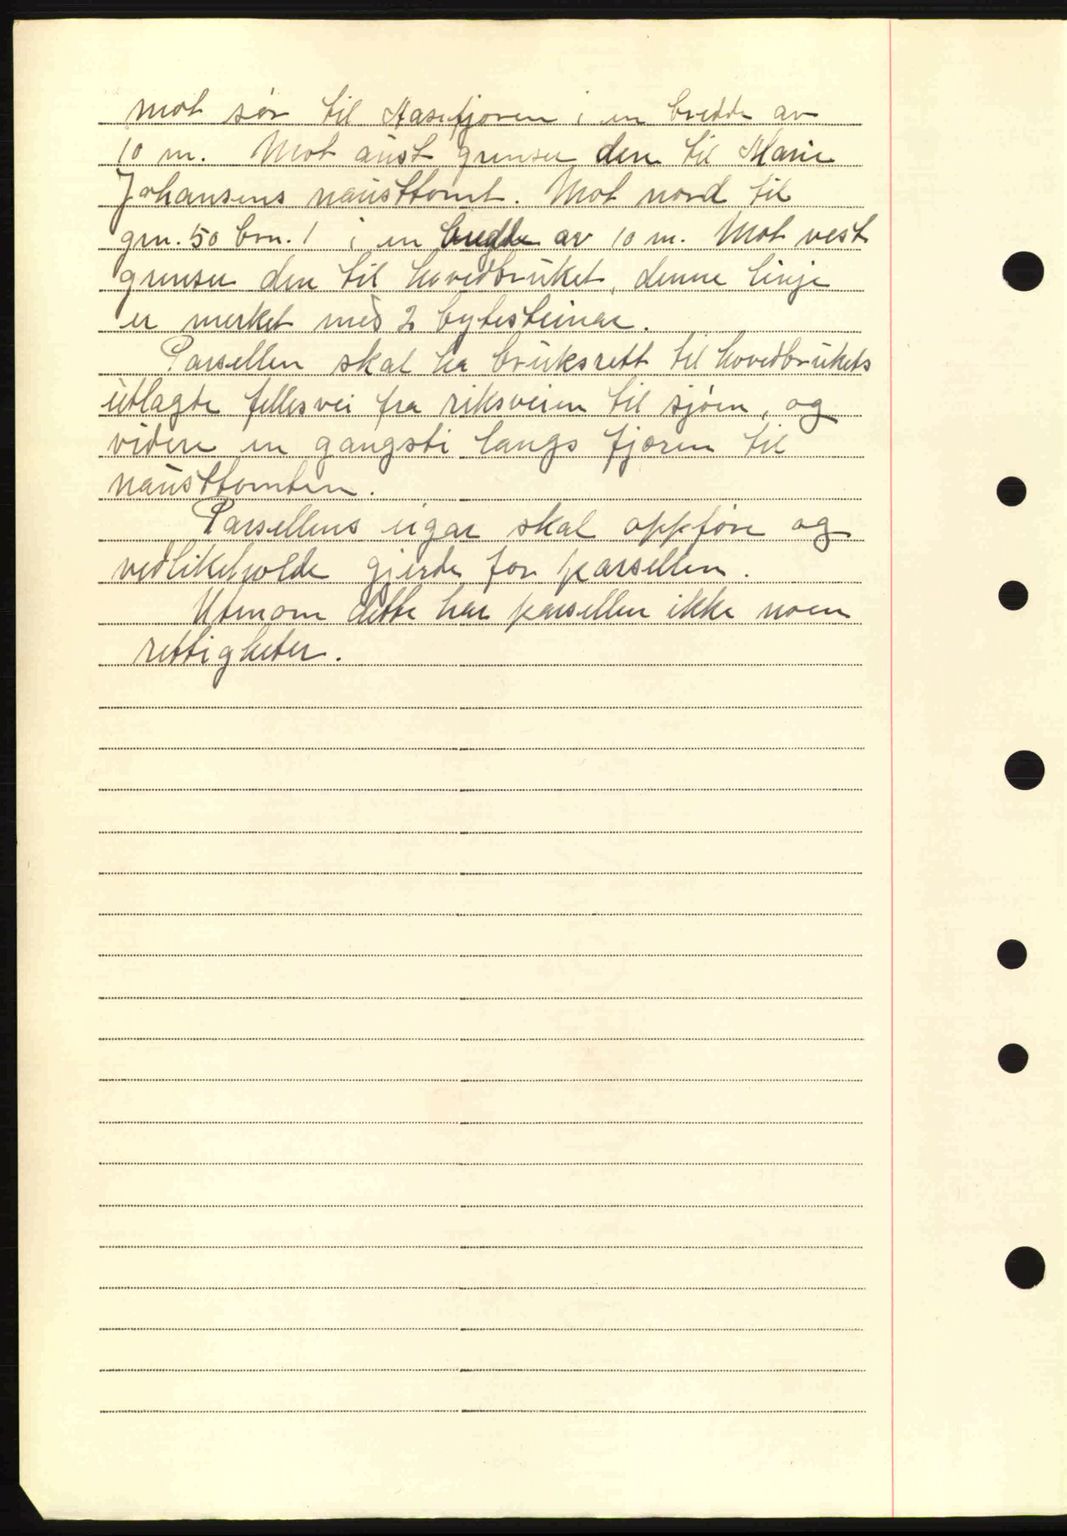 mot sør til Aasefjoren i en bredde av
10 m. Mot aust grenser den til Marie
Johansens nausttomt. Mot nord til
gnr. 50 bnr. 1 i en bredde av 10 m. Mot vest
grenser den til hovedbruket, denne linje
er merket med 2 bytesteinar.
Parsellen skal ha bruksrett til hovedbrukets
utlagte fellesvei fra riksveien til sjøen, og
videre en gangsti langs fjøren til
nausttomten.
Parsellens eigar skal oppføre og
vedlikeholde gjerde for parsellen.
Utenom dette har parsellen ikke noen
rettigheter.